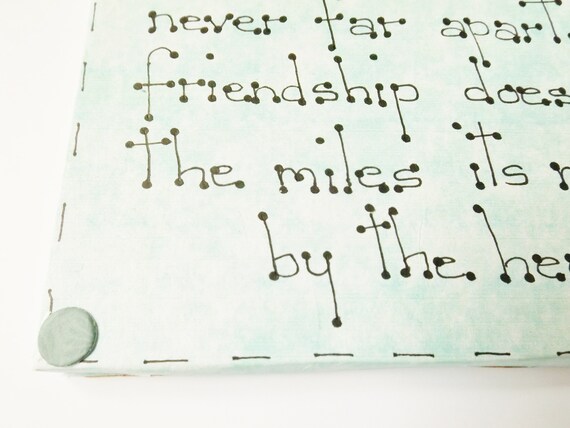 never far apart
friendship does
the miles its
by the hea